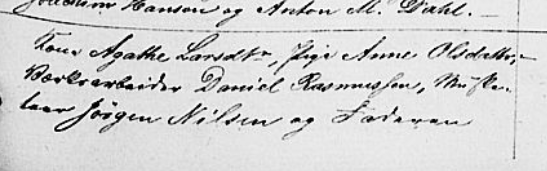 Joachim Hansen og Anton M. Dahl. —
Kone Agathe Larsdtr, Pige Anne Olsdatter,
Værksarbeider Daniel Rasmussen, Muske-
teer Jörgen Nilsen og Faderen